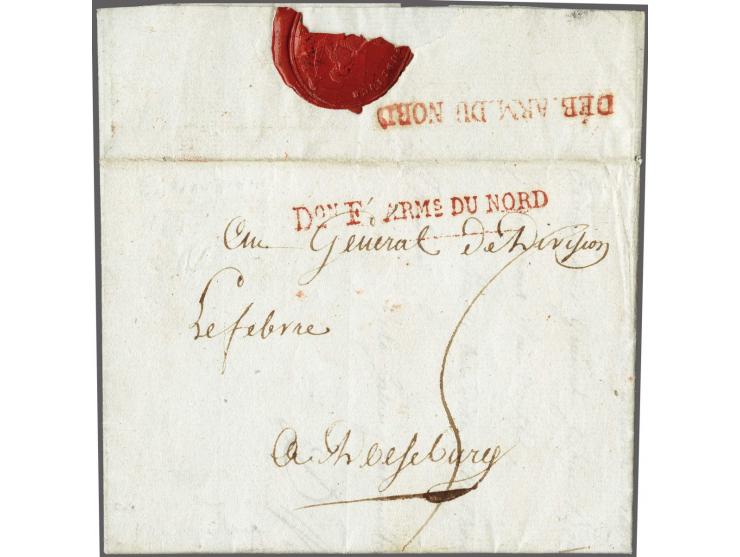 DÉB. ARM. DU NORD
Don F. ARMs DU NORD
Au Général de Division
Lefebvre
A Doesburg